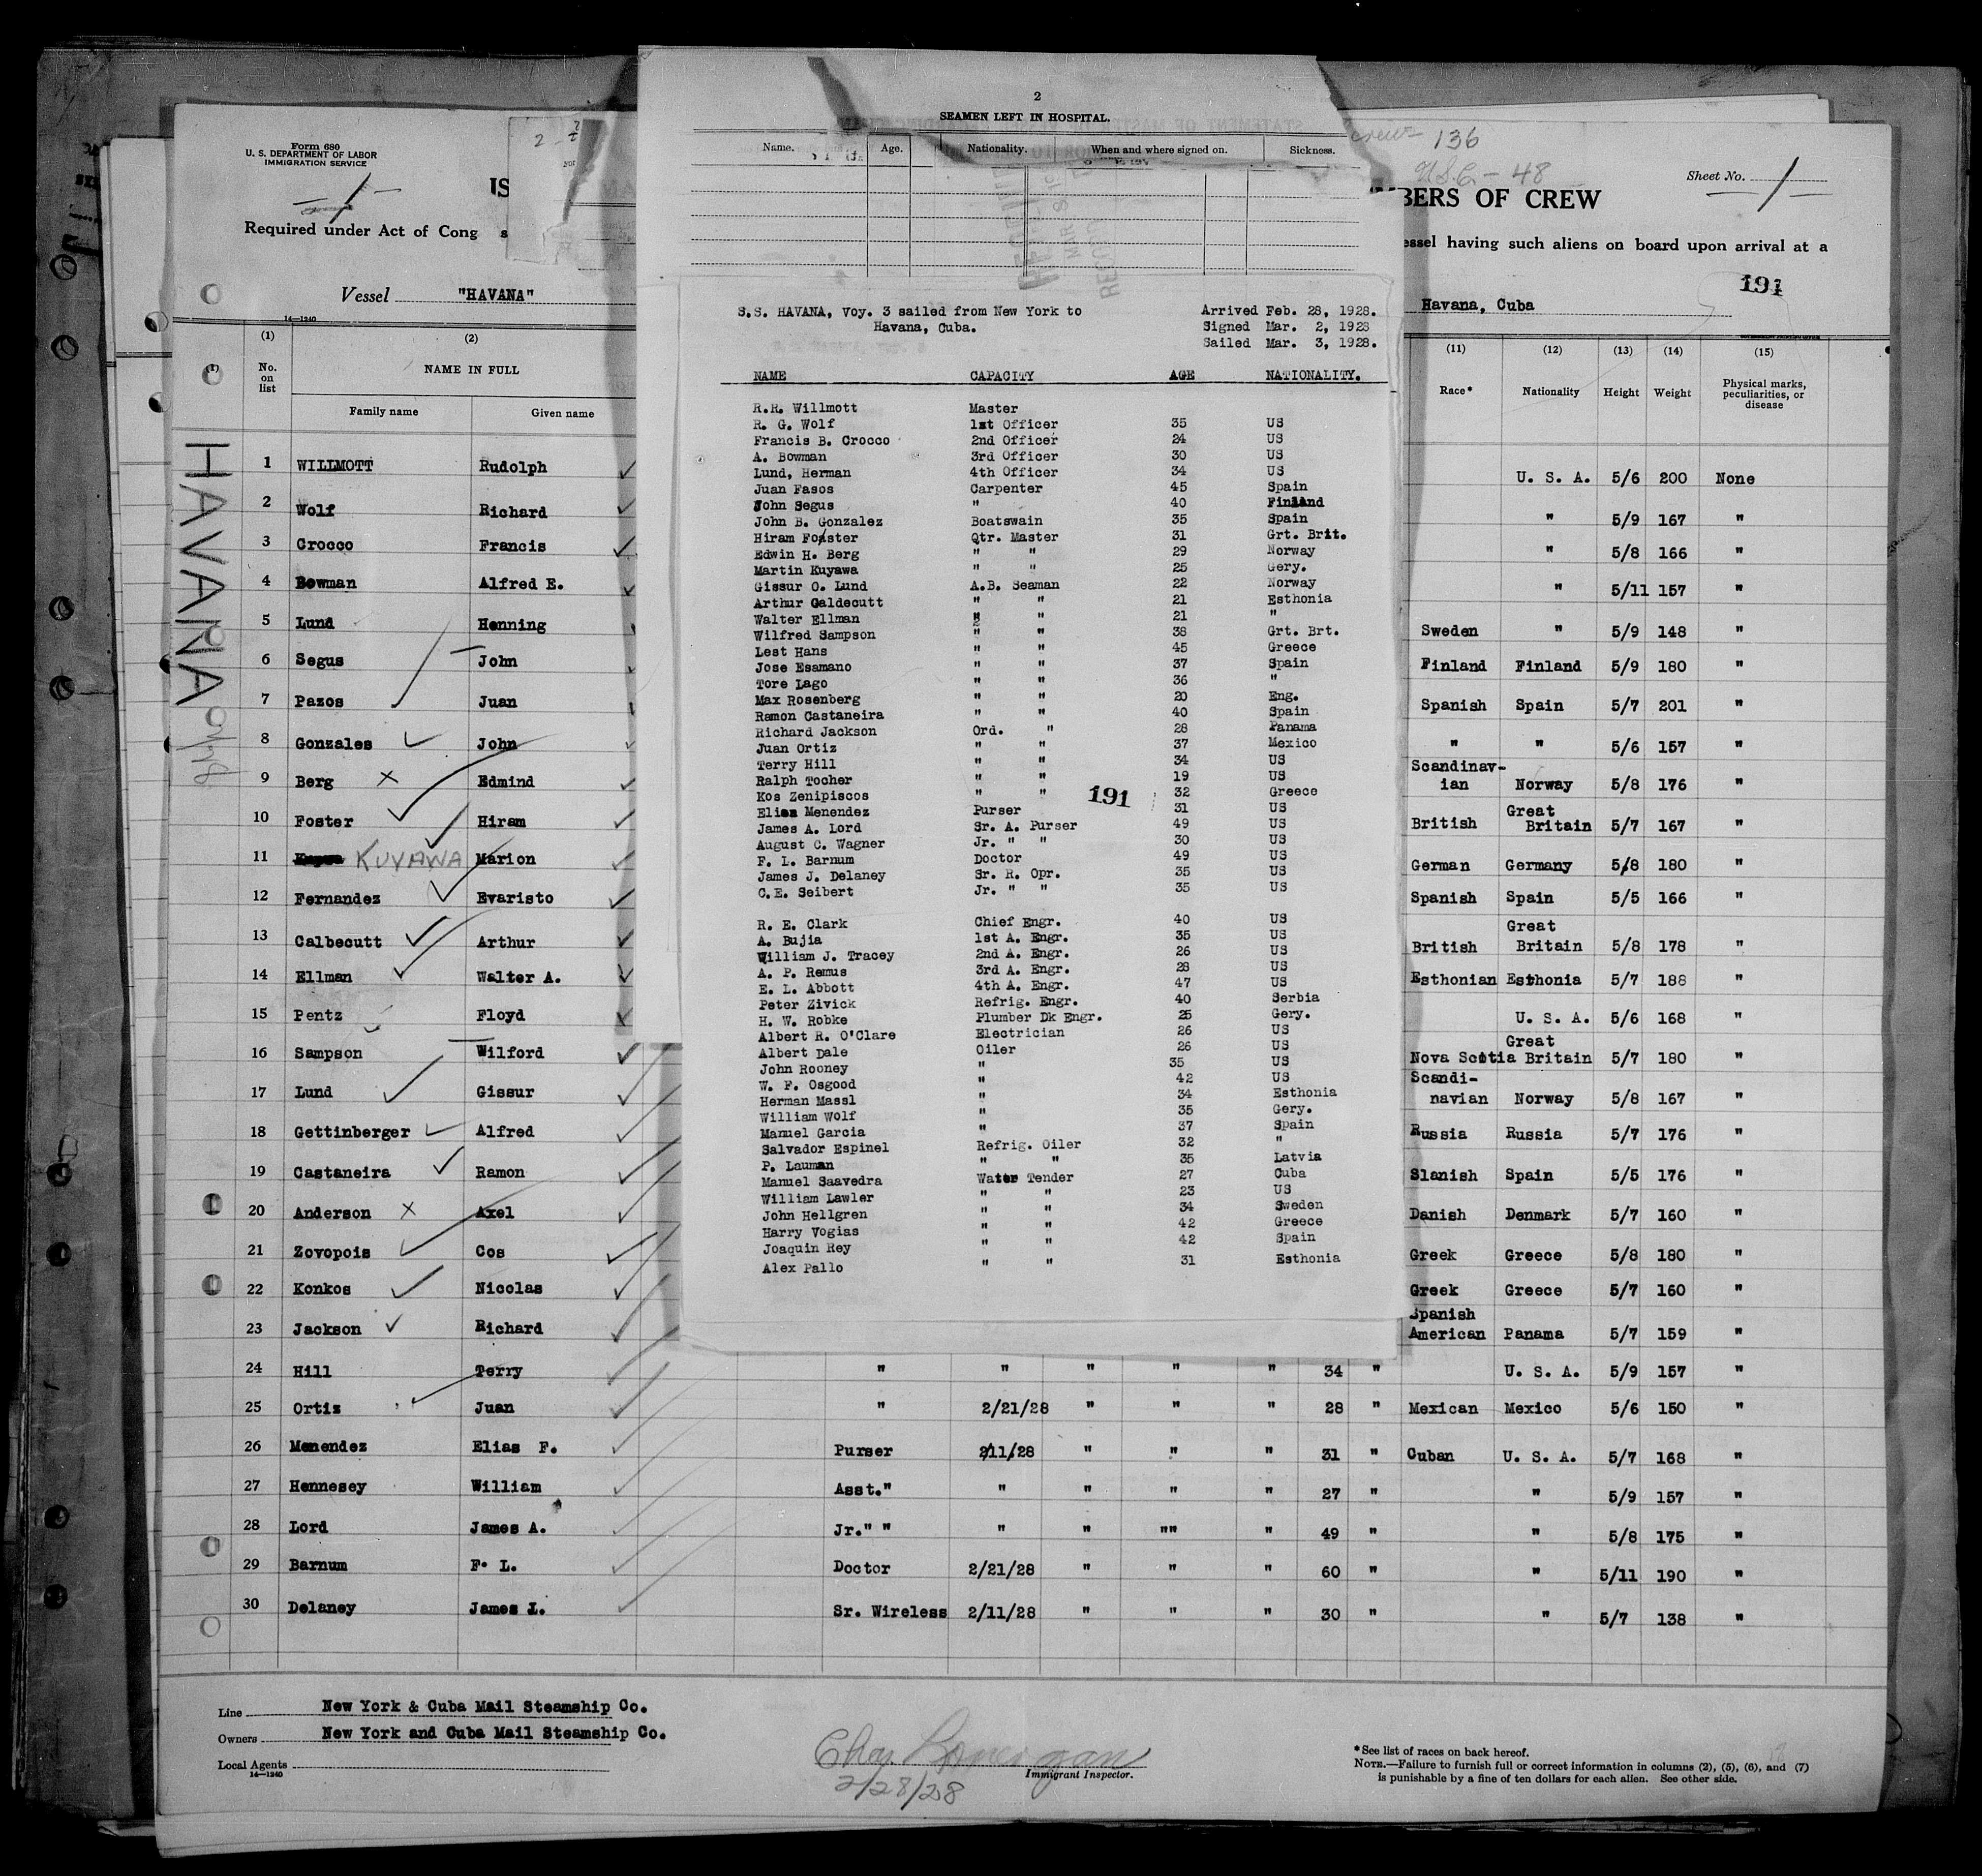 Form 680
U. S. DEPARTMENT OF LABOR
IMMIGRATION SERVICE
Required under Act of Cong
Vessel "HAVANA"
14—1240
(1) (2)
No. on list NAME IN FULL
Family name Given name
HAVANA
1 WILLMOTT Rudolph
2 Wolf Richard
3 Crocco Francis
4 Bowman Alfred E.
5 Lund Henning
6 Segus John
7 Pazos Juan
8 Gonzales John
9 Berg Edmind
10 Foster Hiram
11 KUYAWA Marion
12 Fernandez Evaristo
13 Calbecutt Arthur
14 Ellman Walter A.
15 Pentz Floyd
16 Sampson Wilford
17 Lund Gissur
18 Gettinberger Alfred
19 Castaneira Ramon
20 Anderson Axel
21 Zovopois Cos
22 Konkos Nicolas
23 Jackson Richard
24 Hill Terry " " " " " 34 " U. S. A. 5/9 157 "
25 Ortiz Juan " 2/21/28 " " " 28 " Mexican Mexico 5/6 150 "
26 Menendez Elias F. Purser 2/11/28 " " " 31 " Cuban U. S. A. 5/7 168 "
27 Hennesey William Asst." " " " " 27 " " 5/9 157 "
28 Lord James A. Jr." " " " "" " 49 " " 5/8 175 "
29 Barnum F. L. Doctor 2/21/28 " " " 60 " " 5/11 190 "
30 Delaney James L. Sr. Wireless 2/11/28 " " " 30 " " 5/7 138 "
2
SEAMEN LEFT IN HOSPITAL.
Name. Age. Nationality. When and where signed on. Sickness.
S.S. HAVANA, Voy. 3 sailed from New York to Arrived Feb. 28, 1928.
Havana, Cuba. Signed Mar. 2, 1928
Sailed Mar. 3, 1928.
NAME CAPACITY AGE NATIONALITY.
R.R. Willmott Master
R. G. Wolf 1st Officer 35 US
Francis B. Crocco 2nd Officer 24 US
A. Bowman 3rd Officer 30 US
Lund, Herman 4th Officer 34 US
Juan Fasos Carpenter 45 Spain
John Segus " 40 Finland
John B. Gonzalez Boatswain 35 Spain
Hiram Foster Qtr. Master 31 Grt. Brit.
Edwin H. Berg " " 29 Norway
Martin Kuyawa " " 25 Gery.
Gissur O. Lund A.B. Seaman 22 Norway
Arthur Caldecutt " " 21 Esthonia
Walter Ellman " " 21 "
Wilfred Sampson " " 38 Grt. Brt.
Lest Hans " " 45 Greece
Jose Esamano " " 37 Spain
Tore Lago " " 36 "
Max Rosenberg " " 20 Eng.
Ramon Castaneira " " 40 Spain
Richard Jackson Ord. " 28 Panama
Juan Ortiz " " 37 Mexico
Terry Hill " " 34 US
Ralph Tocher " " 19 US
Kos Zenipiscos " " 32 Greece
191
Elias Menendez Purser 31 US
James A. Lord Sr. A. Purser 49 US
August C. Wagner Jr. " " 30 US
F. L. Barnum Doctor 49 US
James J. Delaney Sr. R. Opr. 35 US
C.E. Seibert Jr. " " 35 US
R. E. Clark Chief Engr. 40 US
A. Bujia 1st A. Engr. 35 US
William J. Tracey 2nd A. Engr. 26 US
A. P. Remus 3rd A. Engr. 28 US
E. L. Abbott 4th A. Engr. 47 US
Peter Zivick Refrig. Engr. 40 Serbia
H. W. Robke Plumber Dk Engr. 25 Gery.
Albert R. O'Clare Electrician 26 US
Albert Dale Oiler 26 US
John Rooney " 35 US
W. F. Osgood " 42 US
Herman Massl " 34 Esthonia
William Wolf " 35 Gery.
Manuel Garcia " 37 Spain
Salvador Espinel Refrig. Oiler 32 "
P. Lauman " " 35 Latvia
Manuel Saavedra Water Tender 27 Cuba
William Lawler " " 23 US
John Hellgren " " 34 Sweden
Harry Vogias " " 42 Greece
Joaquin Rey " " 42 Spain
Alex Pallo " " 31 Esthonia
crew - 136
U.S.C - 48
Sheet No. 1
BERS OF CREW
essel having such aliens on board upon arrival at a
191
Havana, Cuba
(11) (12) (13) (14) (15)
Race* Nationality Height Weight Physical marks, peculiarities, or disease
U. S. A. 5/6 200 None
" 5/9 167 "
" 5/8 166 "
" 5/11 157 "
Sweden " 5/9 148 "
Finland Finland 5/9 180 "
Spanish Spain 5/7 201 "
" " 5/6 157 "
Scandinavian Norway 5/8 176 "
British Great Britain 5/7 167 "
German Germany 5/8 180 "
Spanish Spain 5/5 166 "
British Great Britain 5/8 178 "
Esthonian Esthonia 5/7 188 "
U. S. A. 5/6 168 "
Nova Scotia Great Britain 5/7 180 "
Scandi-navian Norway 5/8 167 "
Russia Russia 5/7 176 "
Slanish Spain 5/5 176 "
Danish Denmark 5/7 160 "
Greek Greece 5/8 180 "
Greek Greece 5/7 160 "
Spanish American Panama 5/7 159 "
Line New York & Cuba Mail Steamship Co.
Owners New York and Cuba Mail Steamship Co.
Local Agents
14—1240
Immigrant Inspector.
2/28/28
*See list of races on back hereof.
NOTE.—Failure to furnish full or correct information in columns (2), (5), (6), and (7)
is punishable by a fine of ten dollars for each alien. See other side.